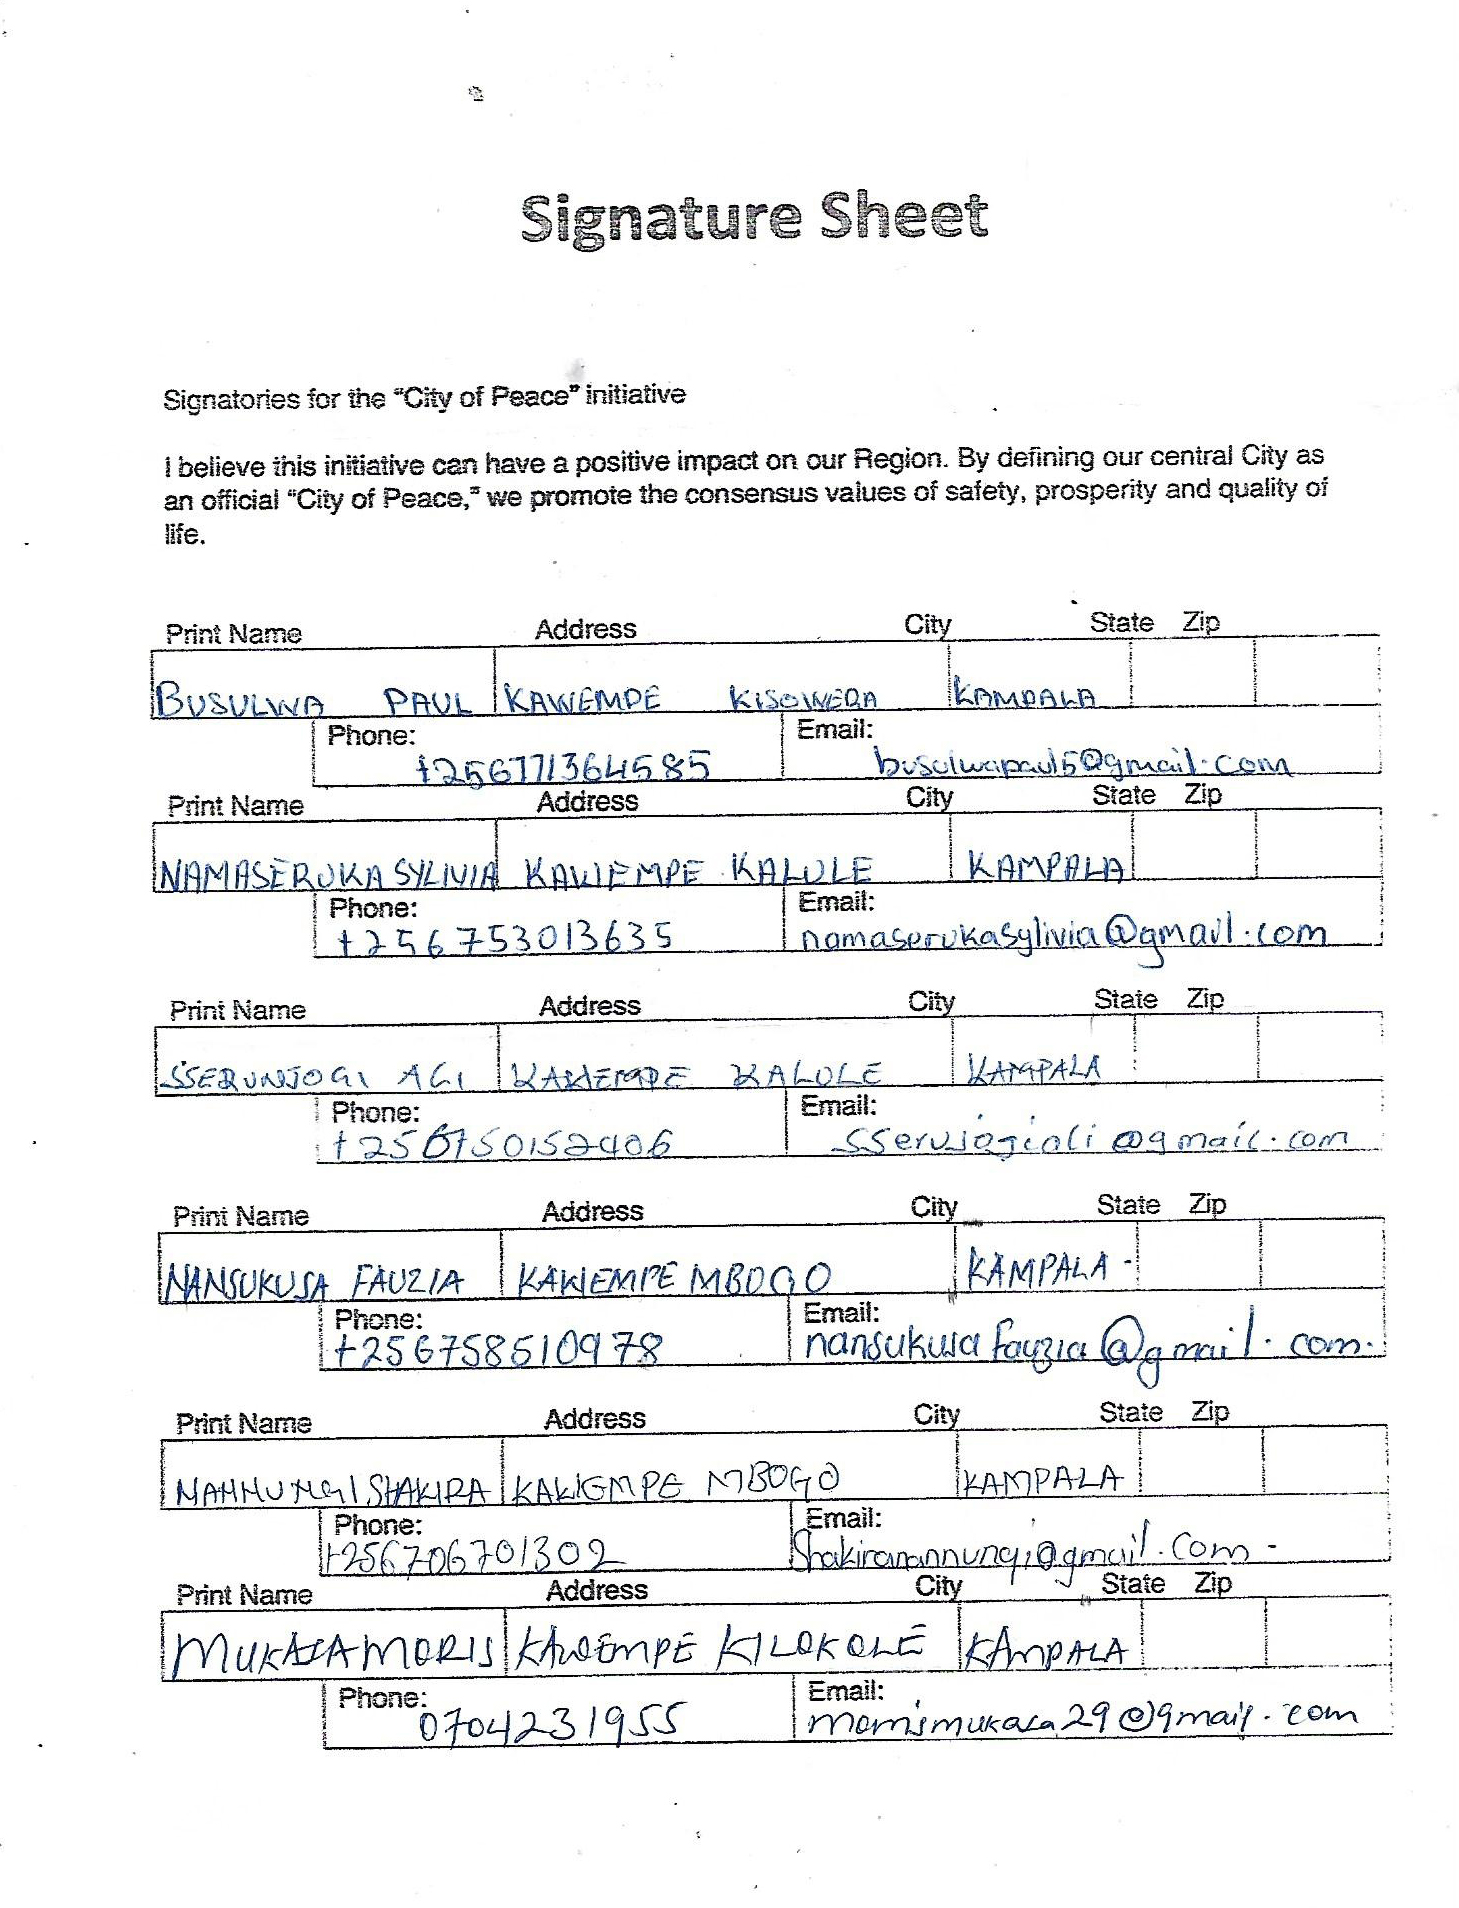 Signature Sheet
Signatories for the "City of Peace" initiative
I believe this initiative can have a positive impact on our Region. By defining our central City as
an official "City of Peace," we promote the consensus values of safety, prosperity and quality of
life.
Print Name Address City State Zip
BUSULWA PAUL KAWEMPE KISOWERA KAMPALA
Phone: Email:
+256771364585 busulwapaul5@gmail.com
Print Name Address City State Zip
NAMASERUKA SYLIVIA KAWEMPE KALULE KAMPALA
Phone: Email:
+256753013635 namaserukasylivia@gmail.com
Print Name Address City State Zip
SSERUNJOGI ALI KAWEMPE KALULE KAMPALA
Phone: Email:
+256750152406 sserujogiali@gmail.com
Print Name Address City State Zip
NANSUKUSA FAUZIA KAWEMPE MBOGO KAMPALA -
Phone: Email:
+256758510978 nansukusafauzia@gmail.com.
Print Name Address City State Zip
NANNUNGI SHAKIRA KAWEMPE MBOGO KAMPALA
Phone: Email:
+256706701302 Shakiranannungi@gmail.com -
Print Name Address City State Zip
MUKASA MORIS KAWEMPE KILOKOLE KAMPALA
Phone: Email:
0704231955 morrismukasa29@gmail.com